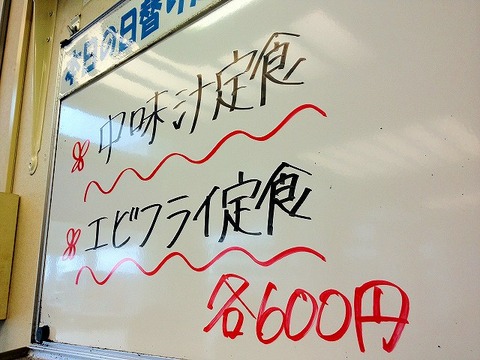 今日の日替り
※中味汁定食
※エビフライ定食
各600円